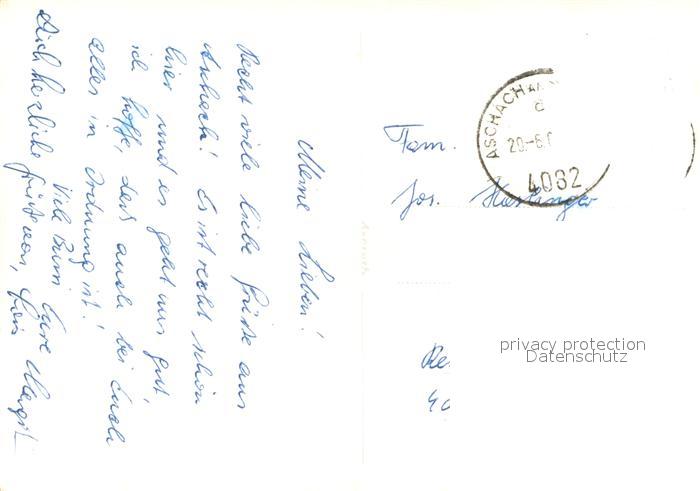 Meine Lieben!
Recht viele liebe Grüße aus
Aschach! Es ist recht schön
hier und es geht uns gut,
ich hoffe, daß auch bei Euch
alles in Ordnung ist!
Viele Eure Margit
Auch herzliche Grüße von,
Fam.
Jos.
ASCHACH AN
d
20.-6.
4082
Re
40
privacy protection
Datenschutz